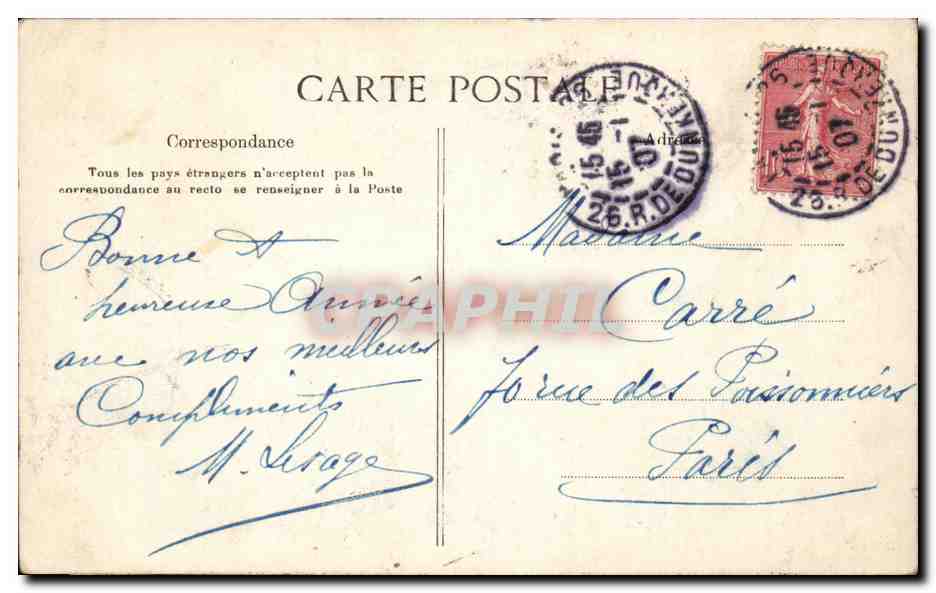 CARTE POSTALE
Correspondance
Adresse
Tous les pays étrangers n'acceptent pas la
correspondance au recto se renseigner à la Poste
15 45
15 - 1
07
26. R. DE DUNKERQUE
15 45
15 - 1
07
26. R. DE DUNKERQUE
Bonne et
heureuse Année
avec nos meilleurs
Compliments
M. Lesage
Madame
Carré
70 rue des Poissonniers
Paris
CPAPHIL